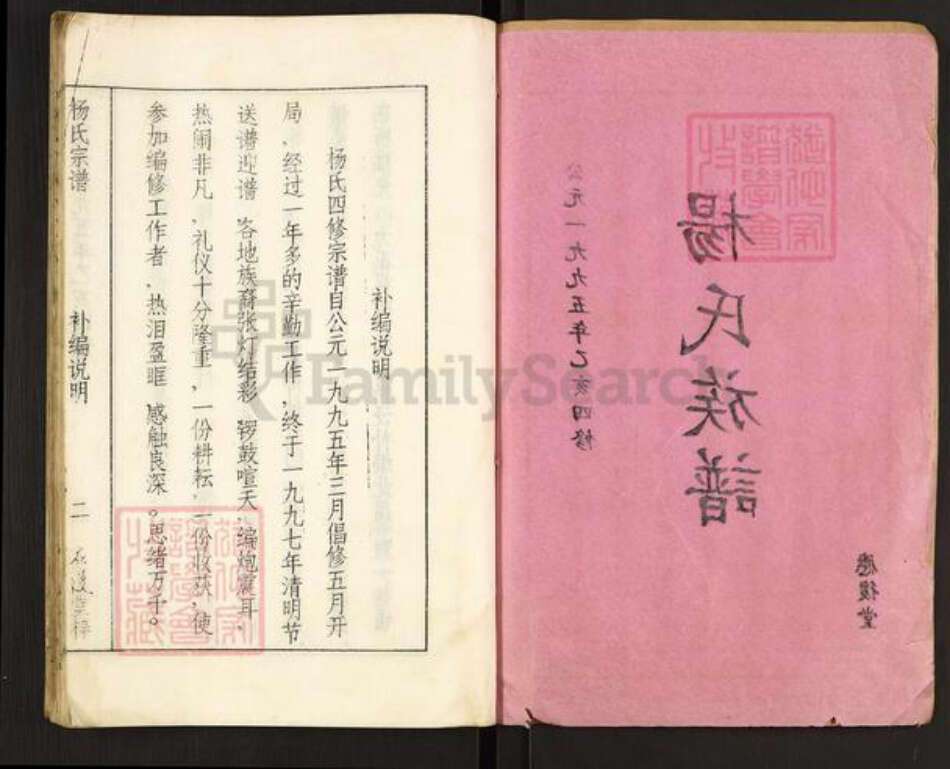 楊氏族譜
公元一九九五年乙亥四修
應後堂
补编说明
杨氏四修宗谱自公元一九九五年三月倡修五月开
局、经过一年多的辛勤工作，终于一九九七年清明节
送谱迎谱、各地族裔张灯结彩、锣鼓喧天、编炮震耳、
热闹非凡、礼仪十分隆重，一份耕耘、一份收获，使
参加编修工作者、热泪盈眶、感触良深。思绪万千。
杨氏宗谱
补编说明
二
FamilySearch